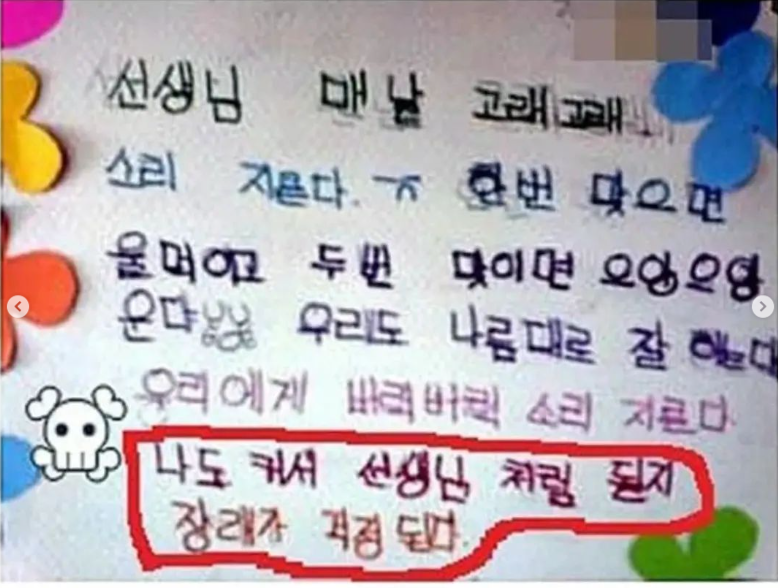 선생님 매날 고래고래
소리 지른다. ㅠ 한번 맞으면
울먹이고 두번 맞이면 으앙으앙
운다 우리도 나름대로 잘 하는대
우리에게 버럭버럭 소리 지른다
나도 커서 선생님 처럼 될지
장래가 걱정 된다.